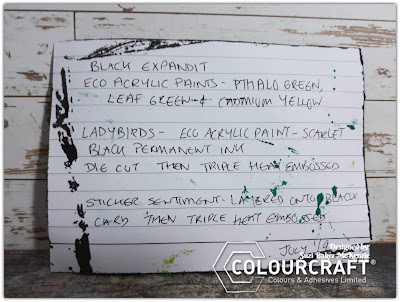 BLACK EXPANDIT
ECO ACRYLIC PAINTS - PTHALO GREEN,
LEAF GREEN & CADMIUM YELLOW
LADYBIRDS - ECO ACRYLIC PAINT - SCARLET
BLACK PERMANENT INK
DIE CUT THEN TRIPLE HEAT EMBOSSED
STICKER SENTIMENT - LAYERED ONTO BLACK
CARD THEN TRIPLE HEAT EMBOSSED
JULY
Designed by
Suzi Baker McKenzie
COLOURCRAFT®
Colours & Adhesives Limited